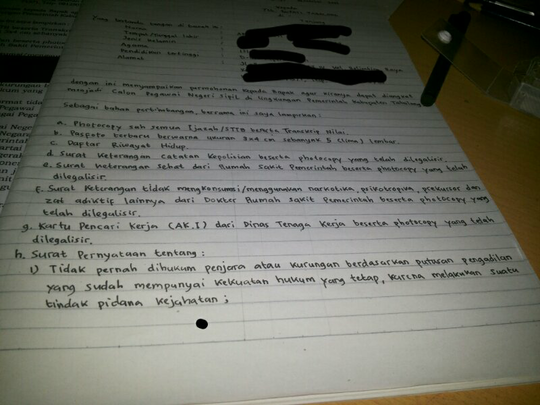 Kepada
Yang bertanda tangan di bawah ini
Nama :
Tempat/Tanggal Lahir :
Jenis Kelamin :
Agama :
Pendidikan Tertinggi :
Alamat :
dengan ini menyampaikan permohonan kepada Bapak agar kiranya dapat diangkat
menjadi Calon Pegawai Negeri Sipil di lingkungan Pemerintah Kabupaten
Sebagai bahan pertimbangan, bersama ini saya lampirkan :
a. Photocopy sah semua Ijazah/STTB beserta Transkrip Nilai.
b. Pasfoto terbaru berwarna ukuran 3x4 cm sebanyak 5 (lima) lembar.
c. Daftar Riwayat Hidup.
d. Surat Keterangan Catatan Kepolisian beserta photocopy yang telah dilegalisir.
e. Surat Keterangan Sehat dari Rumah Sakit Pemerintah beserta photocopy yang telah
dilegalisir.
f. Surat Keterangan tidak mengkonsumsi/menggunakan narkotika, psikotropika, prekursor dan
zat adiktif lainnya dari Dokter Rumah Sakit Pemerintah beserta photocopy yang
telah dilegalisir.
g. Kartu Pencari Kerja (AK.I) dari Dinas Tenaga Kerja beserta photocopy yang telah
dilegalisir.
h. Surat Pernyataan tentang :
1) Tidak pernah dihukum penjara atau kurungan berdasarkan putusan pengadilan
yang sudah mempunyai kekuatan hukum yang tetap, karena melakukan suatu
tindak pidana kejahatan ;